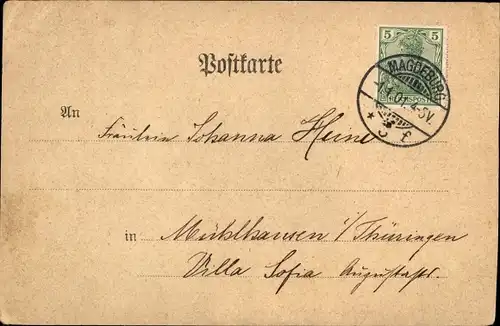 5 5
Postkarte
MAGDEBURG
4-5V.
* 5 f
An
Fräulein Johanna Heine
in Mühlhausen i/Thüringen
Villa Sofia Auguststr.